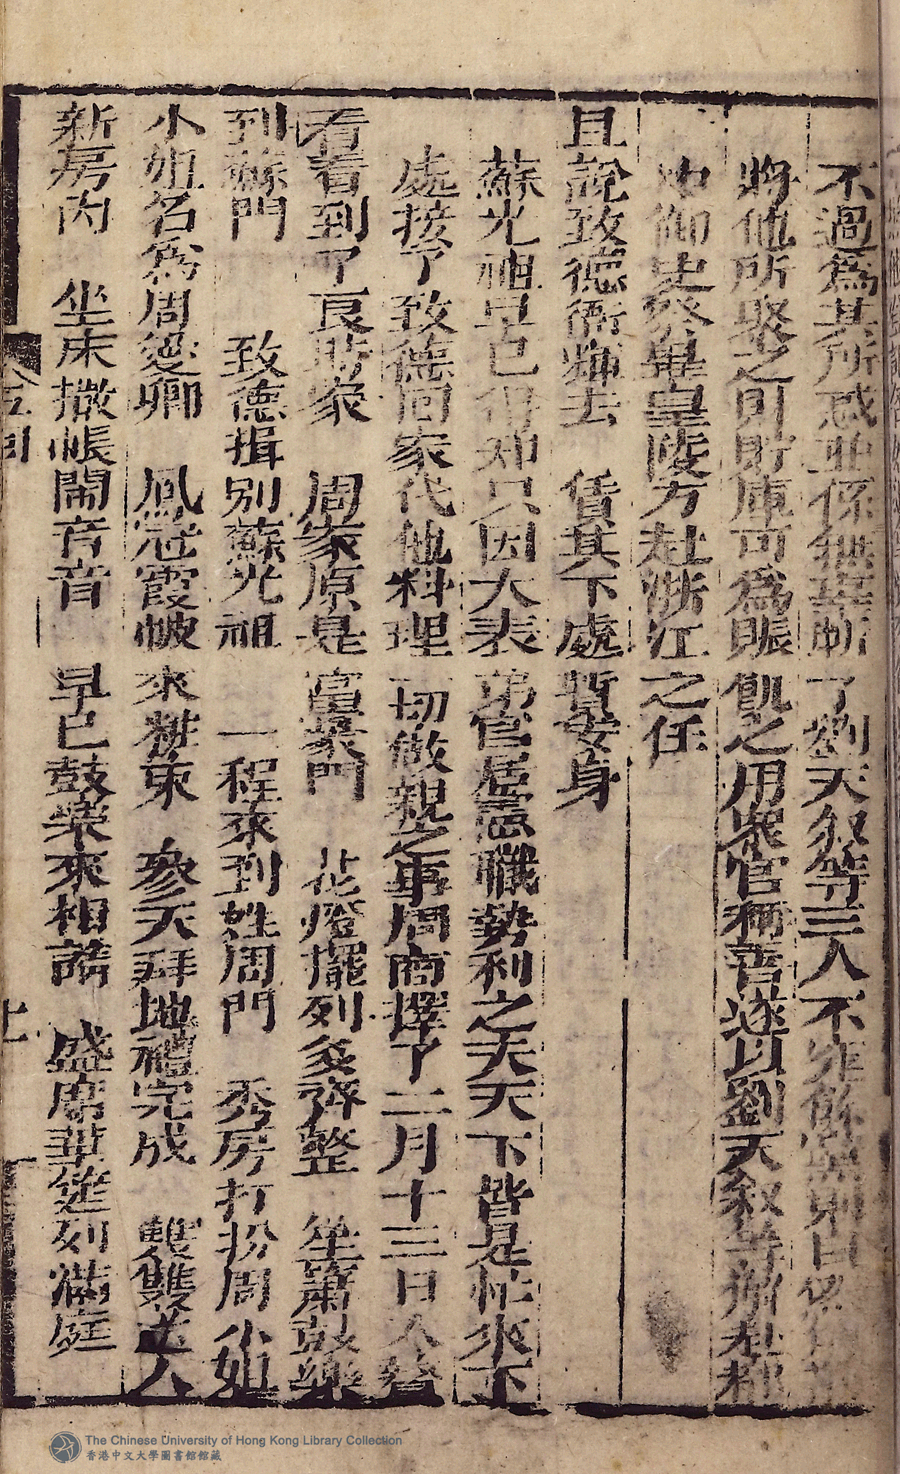 不過爲其所惑並係無辜斬了劉天叙等三人不究餘黨則日
將他所聚之財貯庫可爲賑飢之用衆官稱善遂以劉天叙等解赴都
御史祭畢皇陵方赴浙江之任
且說致德衙輝去　賃其下處暫安身
蘇光祖早已得知只因大表弟官居憲職勢利之夫天下皆是忙來下
處接了致德回家代他料理一切做親之事周商擇了二月十三日入贅
看看到了良時家　周家原是富豪門　花燈擺列多齊整　笙簫鼓樂
到蘇門　致德揖別蘇光祖　一程來到姓周門　秀房打扮周小姐
小姐名爲周愛卿　鳳冠霞帔來粧束　參天拜地禮完成　雙雙送入
新房內　坐床撒帳鬧音音　早已鼓樂來相請　盛席華筵列滿庭
The Chinese University of Hong Kong Library Collection
香港中文大學圖書館館藏